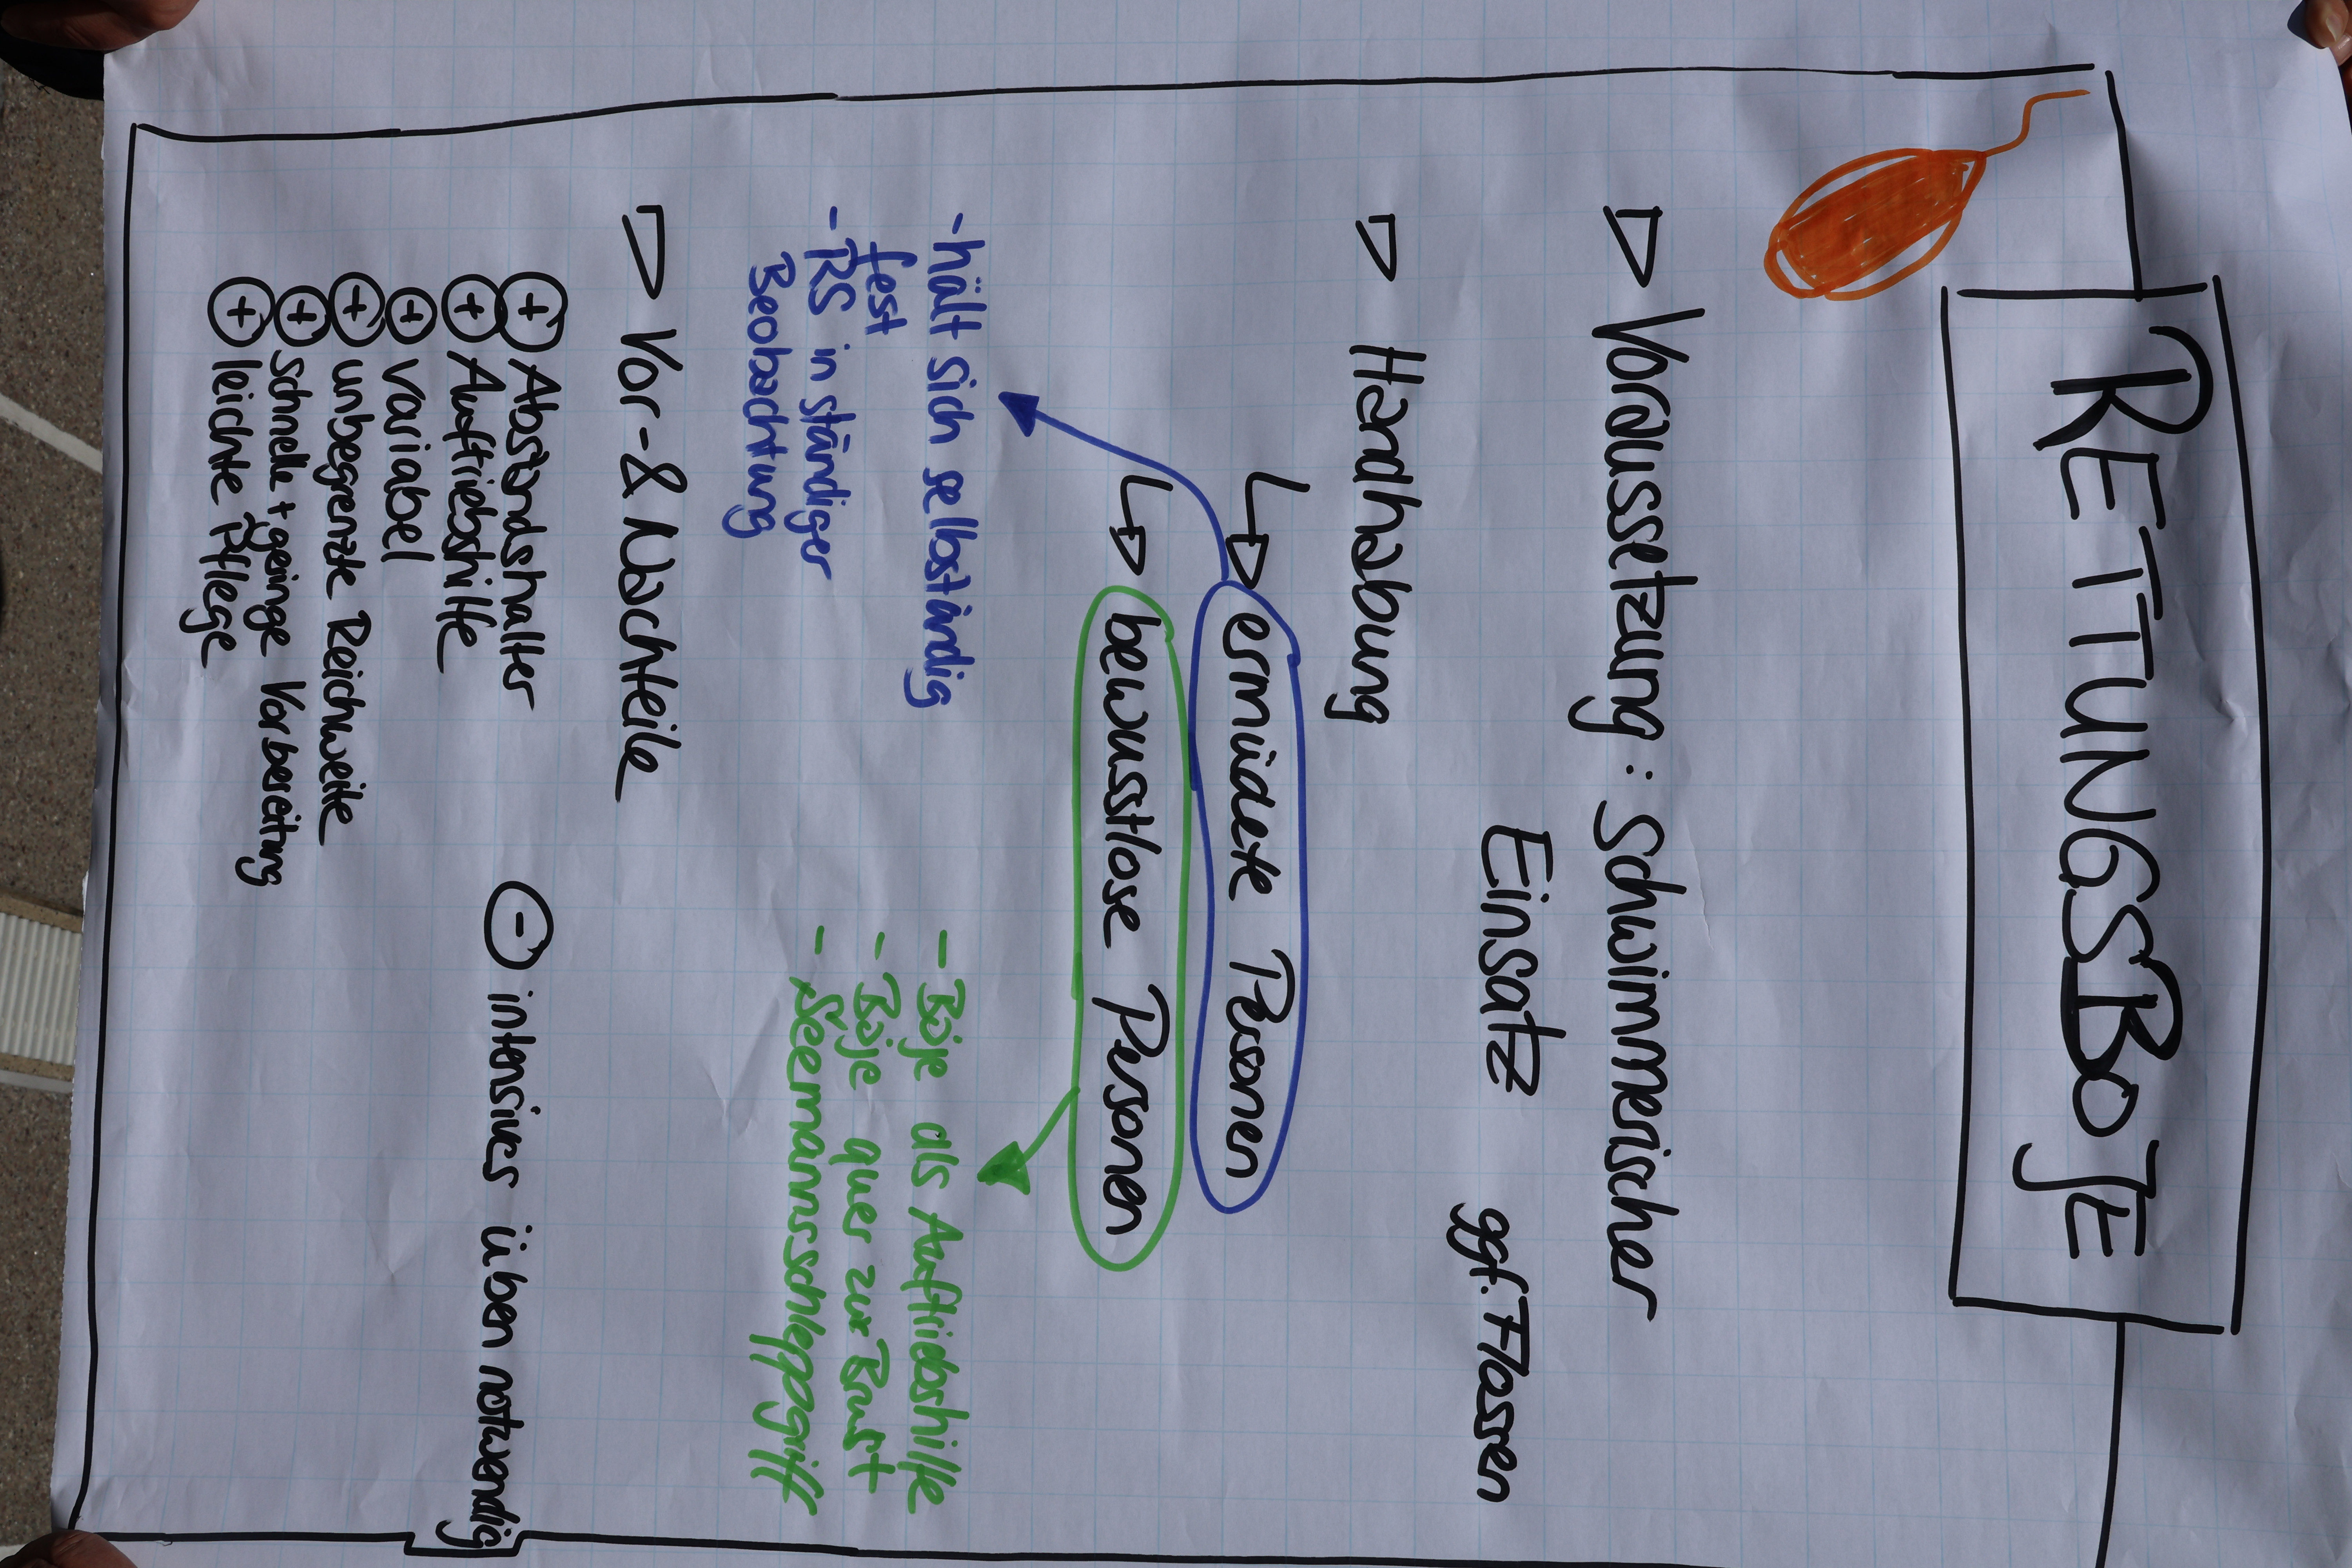 RETTUNGSBOJE
▷ Voraussetzung: Schwimmerischer
Einsatz ggf. Flossen
▷ Handhabung
↳ ermüdete Personen
↳ bewusstlose Personen
- hält sich selbständig
fest
- RS in ständiger
Beobachtung
- Boje als Auftriebshilfe
- Boje quer zur Brust
- Seemannsschleppgriff
▷ Vor- & Nachteile
⊕ Abstandshalter
⊕ Auftriebshilfe
⊕ variabel
⊕ unbegrenzte Reichweite
⊕ schnelle + geringe Vorbereitung
⊕ leichte Pflege
⊖ intensives üben notwendig